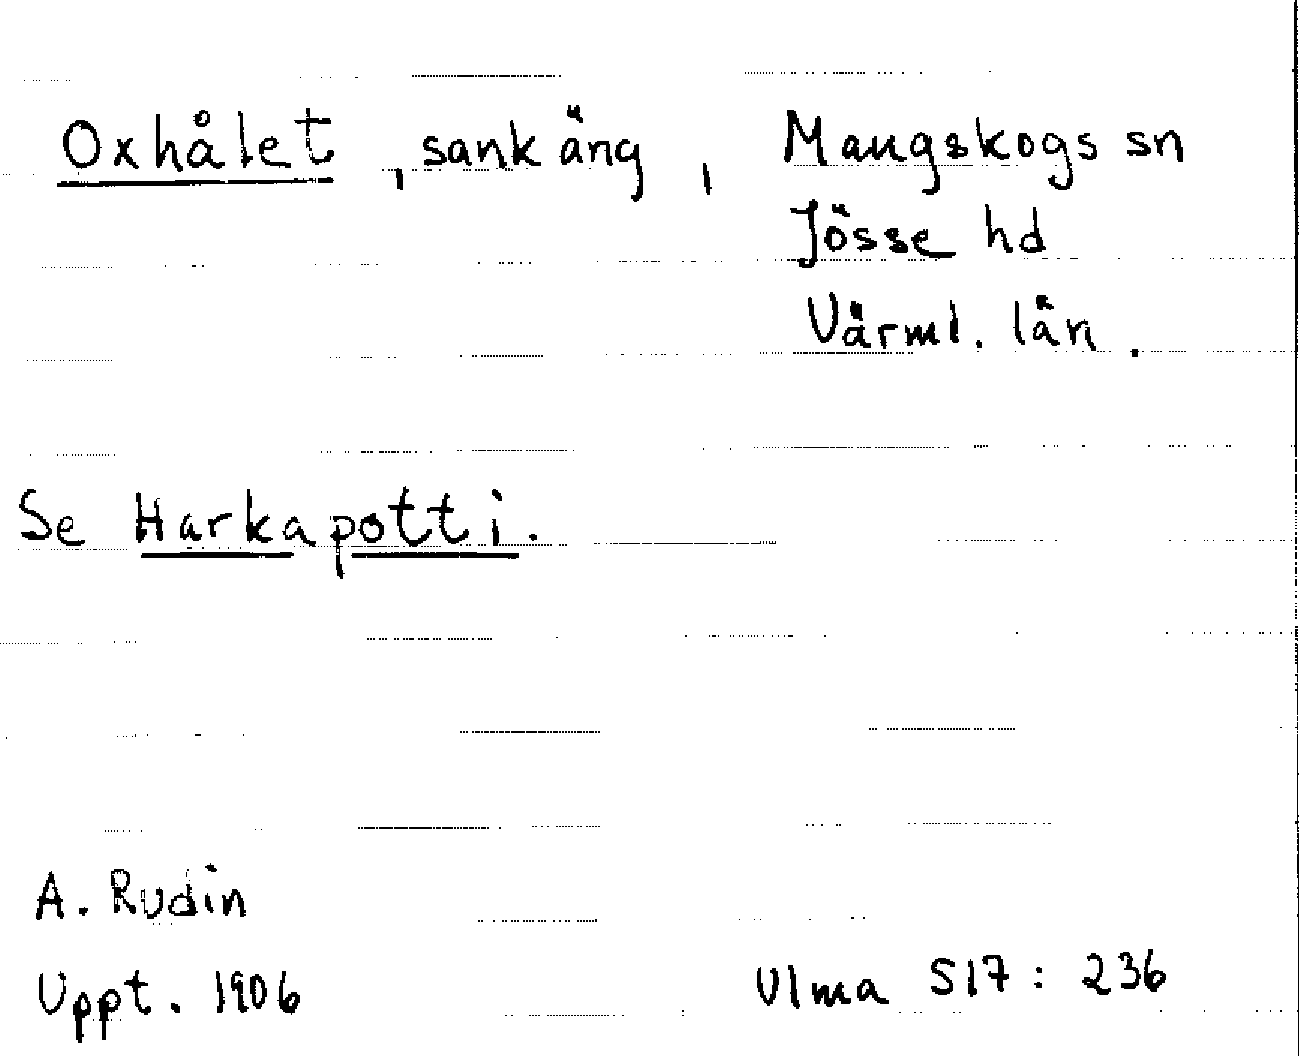 Oxhålet, sankäng, Mangskogs sn
Jösse hd
Värml. län.
Se Harkapotti.
A. Rudin
Uppt. 1906
Ulma S17: 236